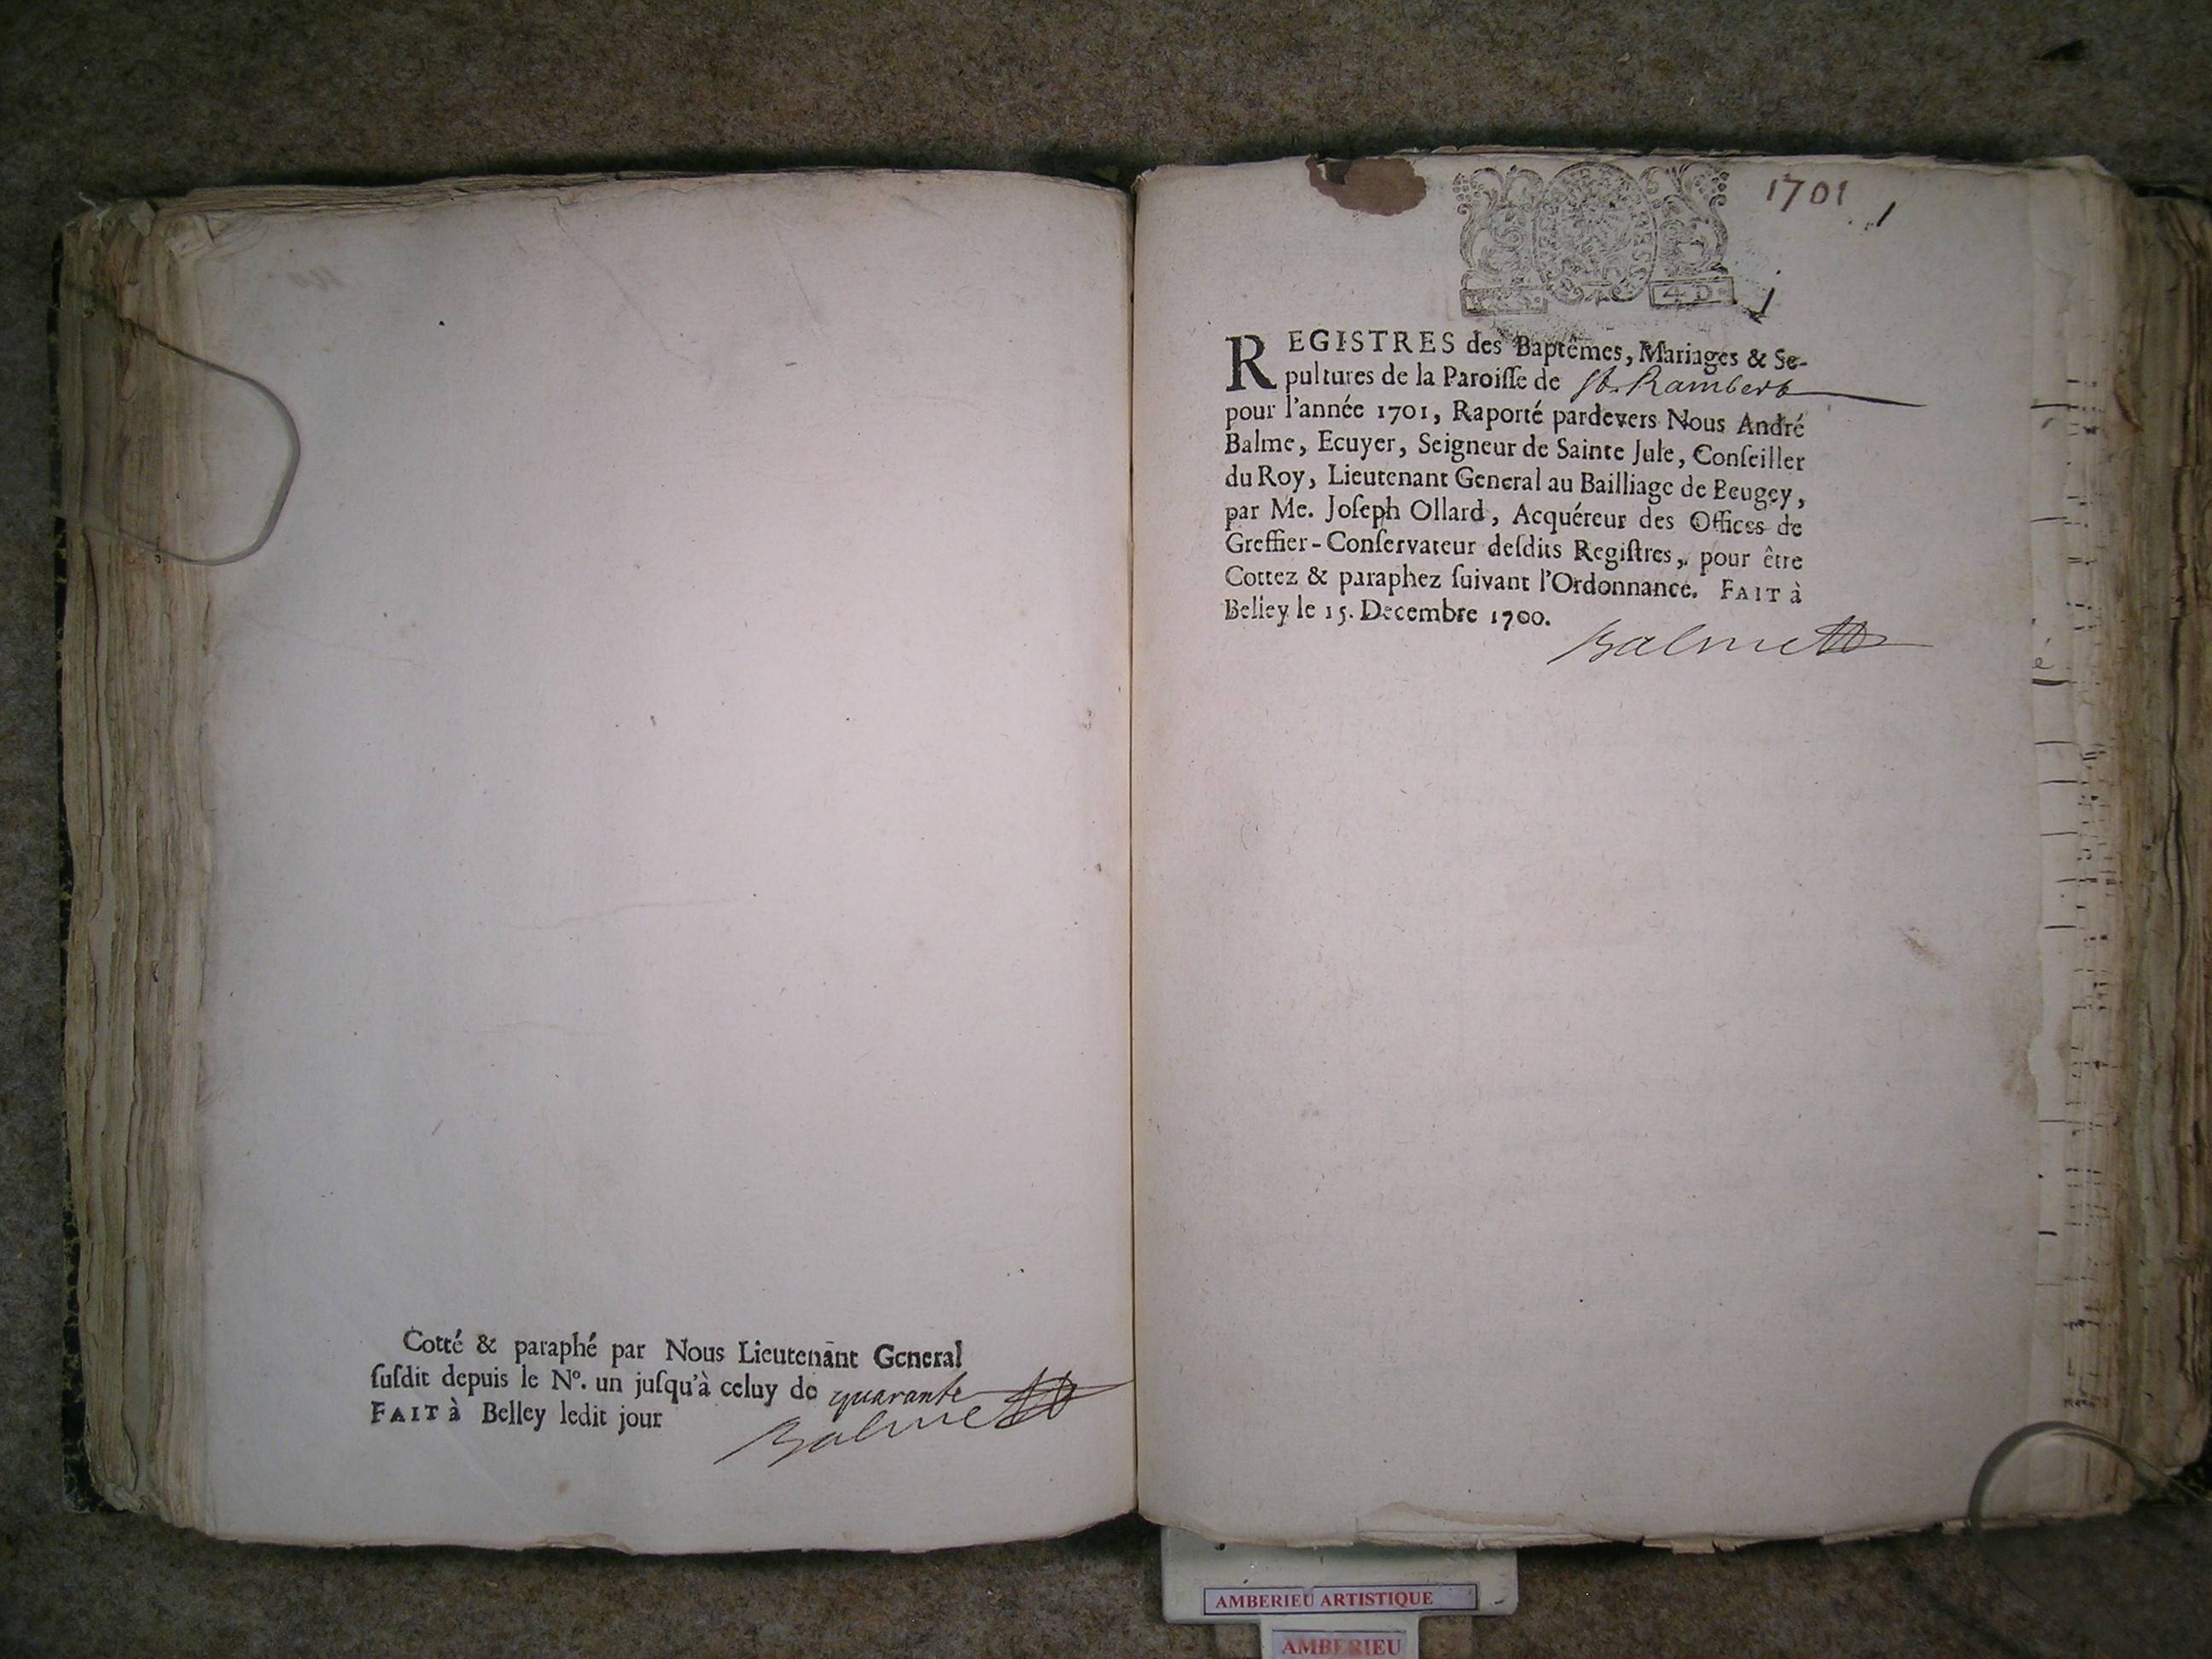 Cotté & paraphé par Nous Lieutenānt General
ſuſdit depuis le Nº. un juſqu'à celuy de quarante
FAIT à Belley ledit jour
Balme
1701
1
1
REGISTRES des Baptêmes, Mariages & Se-
pultures de la Paroiſſe de St. Rambert
pour l'année 1701, Raporté pardevers Nous André
Balme, Ecuyer, Seigneur de Sainte Jule, Conſeiller
du Roy, Lieutenant General au Bailliage de Beugey,
par Me. Joſeph Ollard, Acquéreur des Offices de
Greffier-Conſervateur deſdits Regiſtres, pour être
Cottez & paraphez ſuivant l'Ordonnance. FAIT à
Belley le 15. Decembre 1700.
Balme
AMBERIEU ARTISTIQUE
AMBERIEU